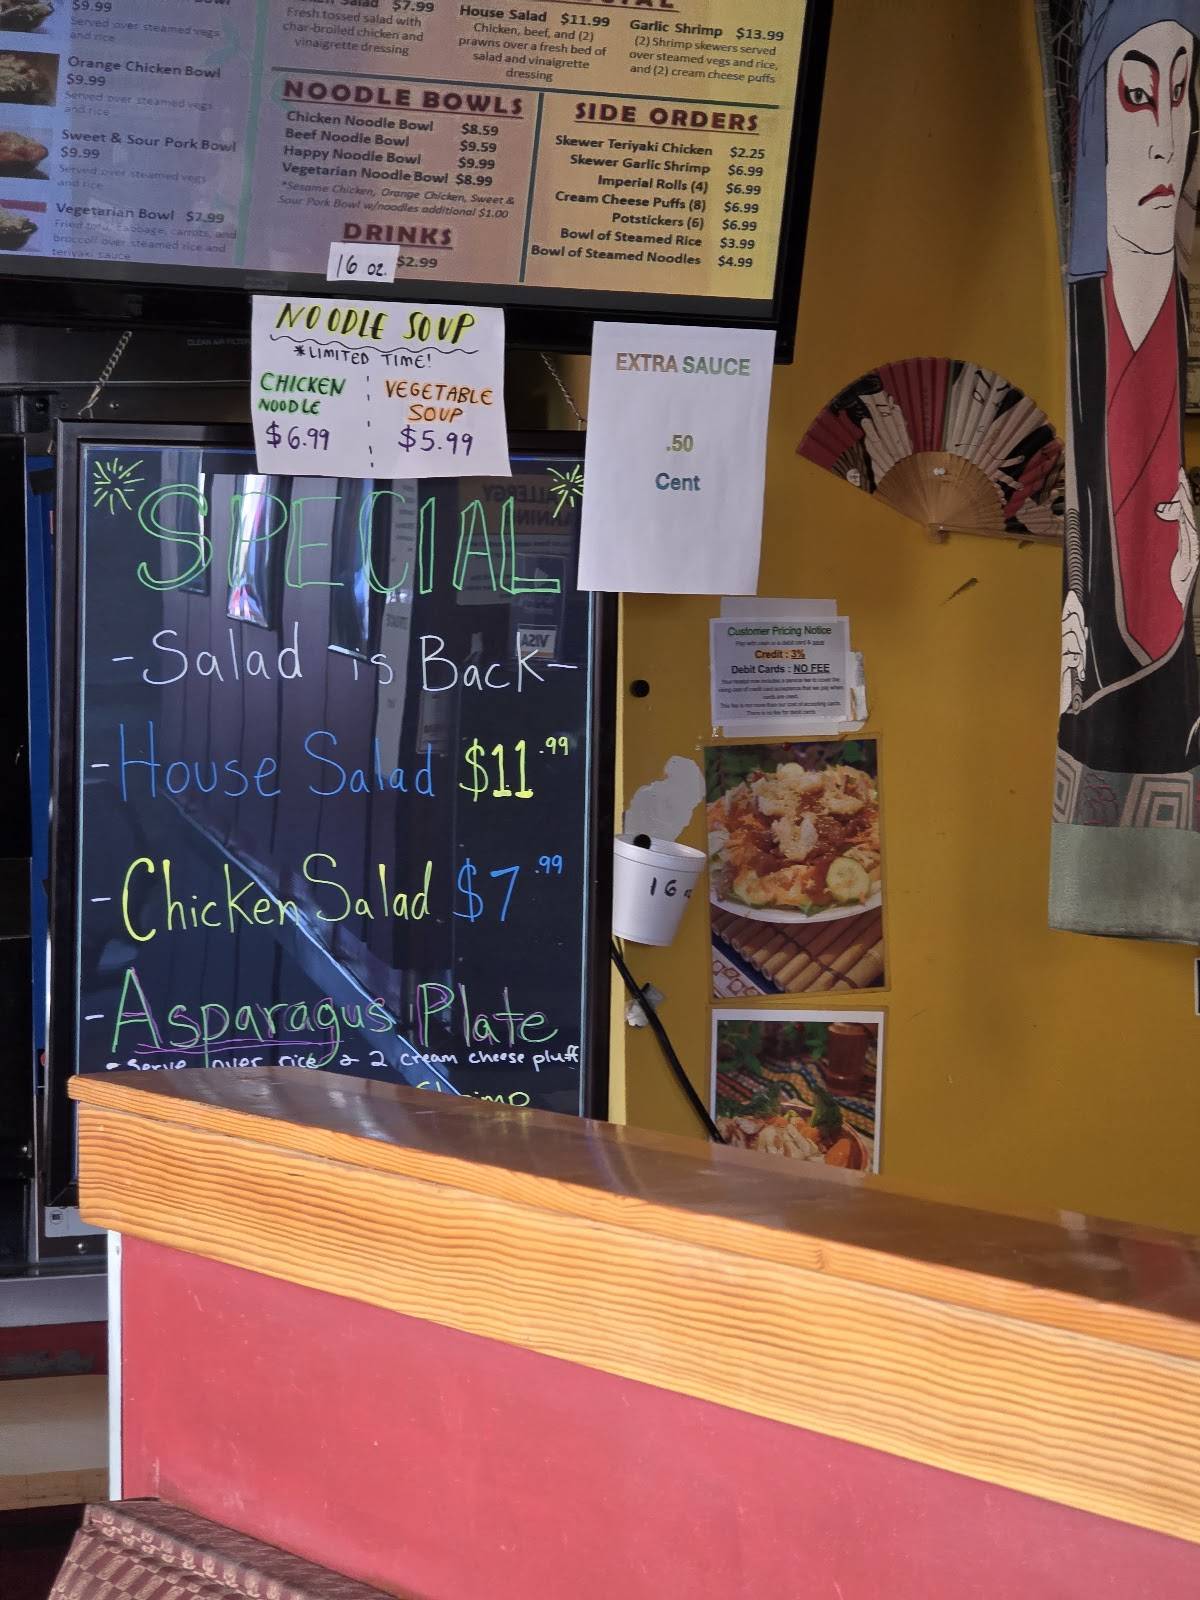 $9.99
Served over steamed vegs
and rice
Orange Chicken Bowl
$9.99
Served over steamed vegs
and rice
Sweet & Sour Pork Bowl
$9.99
Served over steamed vegs
and rice
Vegetarian Bowl $7.99
Fried tofu, cabbage, carrots, and
broccoli over steamed rice and
teriyaki sauce
Salad $7.99
Fresh tossed salad with
char-broiled chicken and
vinaigrette dressing
House Salad $11.99
Chicken, beef, and (2)
prawns over a fresh bed of
salad and vinaigrette
dressing
Garlic Shrimp $13.99
(2) Shrimp skewers served
over steamed vegs and rice,
and (2) cream cheese puffs
NOODLE BOWLS
Chicken Noodle Bowl $8.59
Beef Noodle Bowl $9.59
Happy Noodle Bowl $9.99
Vegetarian Noodle Bowl $8.99
*Sesame Chicken, Orange Chicken, Sweet &
Sour Pork Bowl w/noodles additional $1.00
DRINKS
16 oz. $2.99
SIDE ORDERS
Skewer Teriyaki Chicken $2.25
Skewer Garlic Shrimp $6.99
Imperial Rolls (4) $6.99
Cream Cheese Puffs (8) $6.99
Potstickers (6) $6.99
Bowl of Steamed Rice $3.99
Bowl of Steamed Noodles $4.99
NOODLE SOUP
*LIMITED TIME!
CHICKEN
NOODLE
$6.99
VEGETABLE
SOUP
$5.99
EXTRA SAUCE
.50
Cent
SPECIAL
-Salad is Back-
-House Salad $11.99
-Chicken Salad $7.99
-Asparagus Plate
Serve over rice & 2 cream cheese pluff
Customer Pricing Notice
Credit : 3%
Debit Cards : NO FEE
There is no fee for debit cards
16
VISA